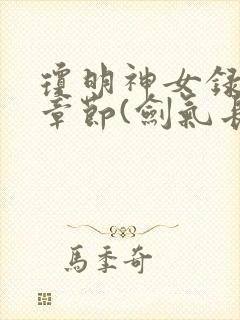 瓊明神女錄
章節(劍氣長
馬季奇